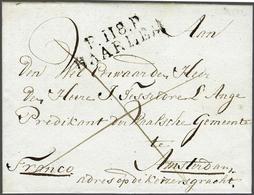 P.118.P
HAARLEM
Aan
Den Wel Eerwaarden Heer
den Heere J Tissedre L'Ange
Predikant der Waalsche Gemeente
te
Franco Amsterdam
adres op de Keizersgracht